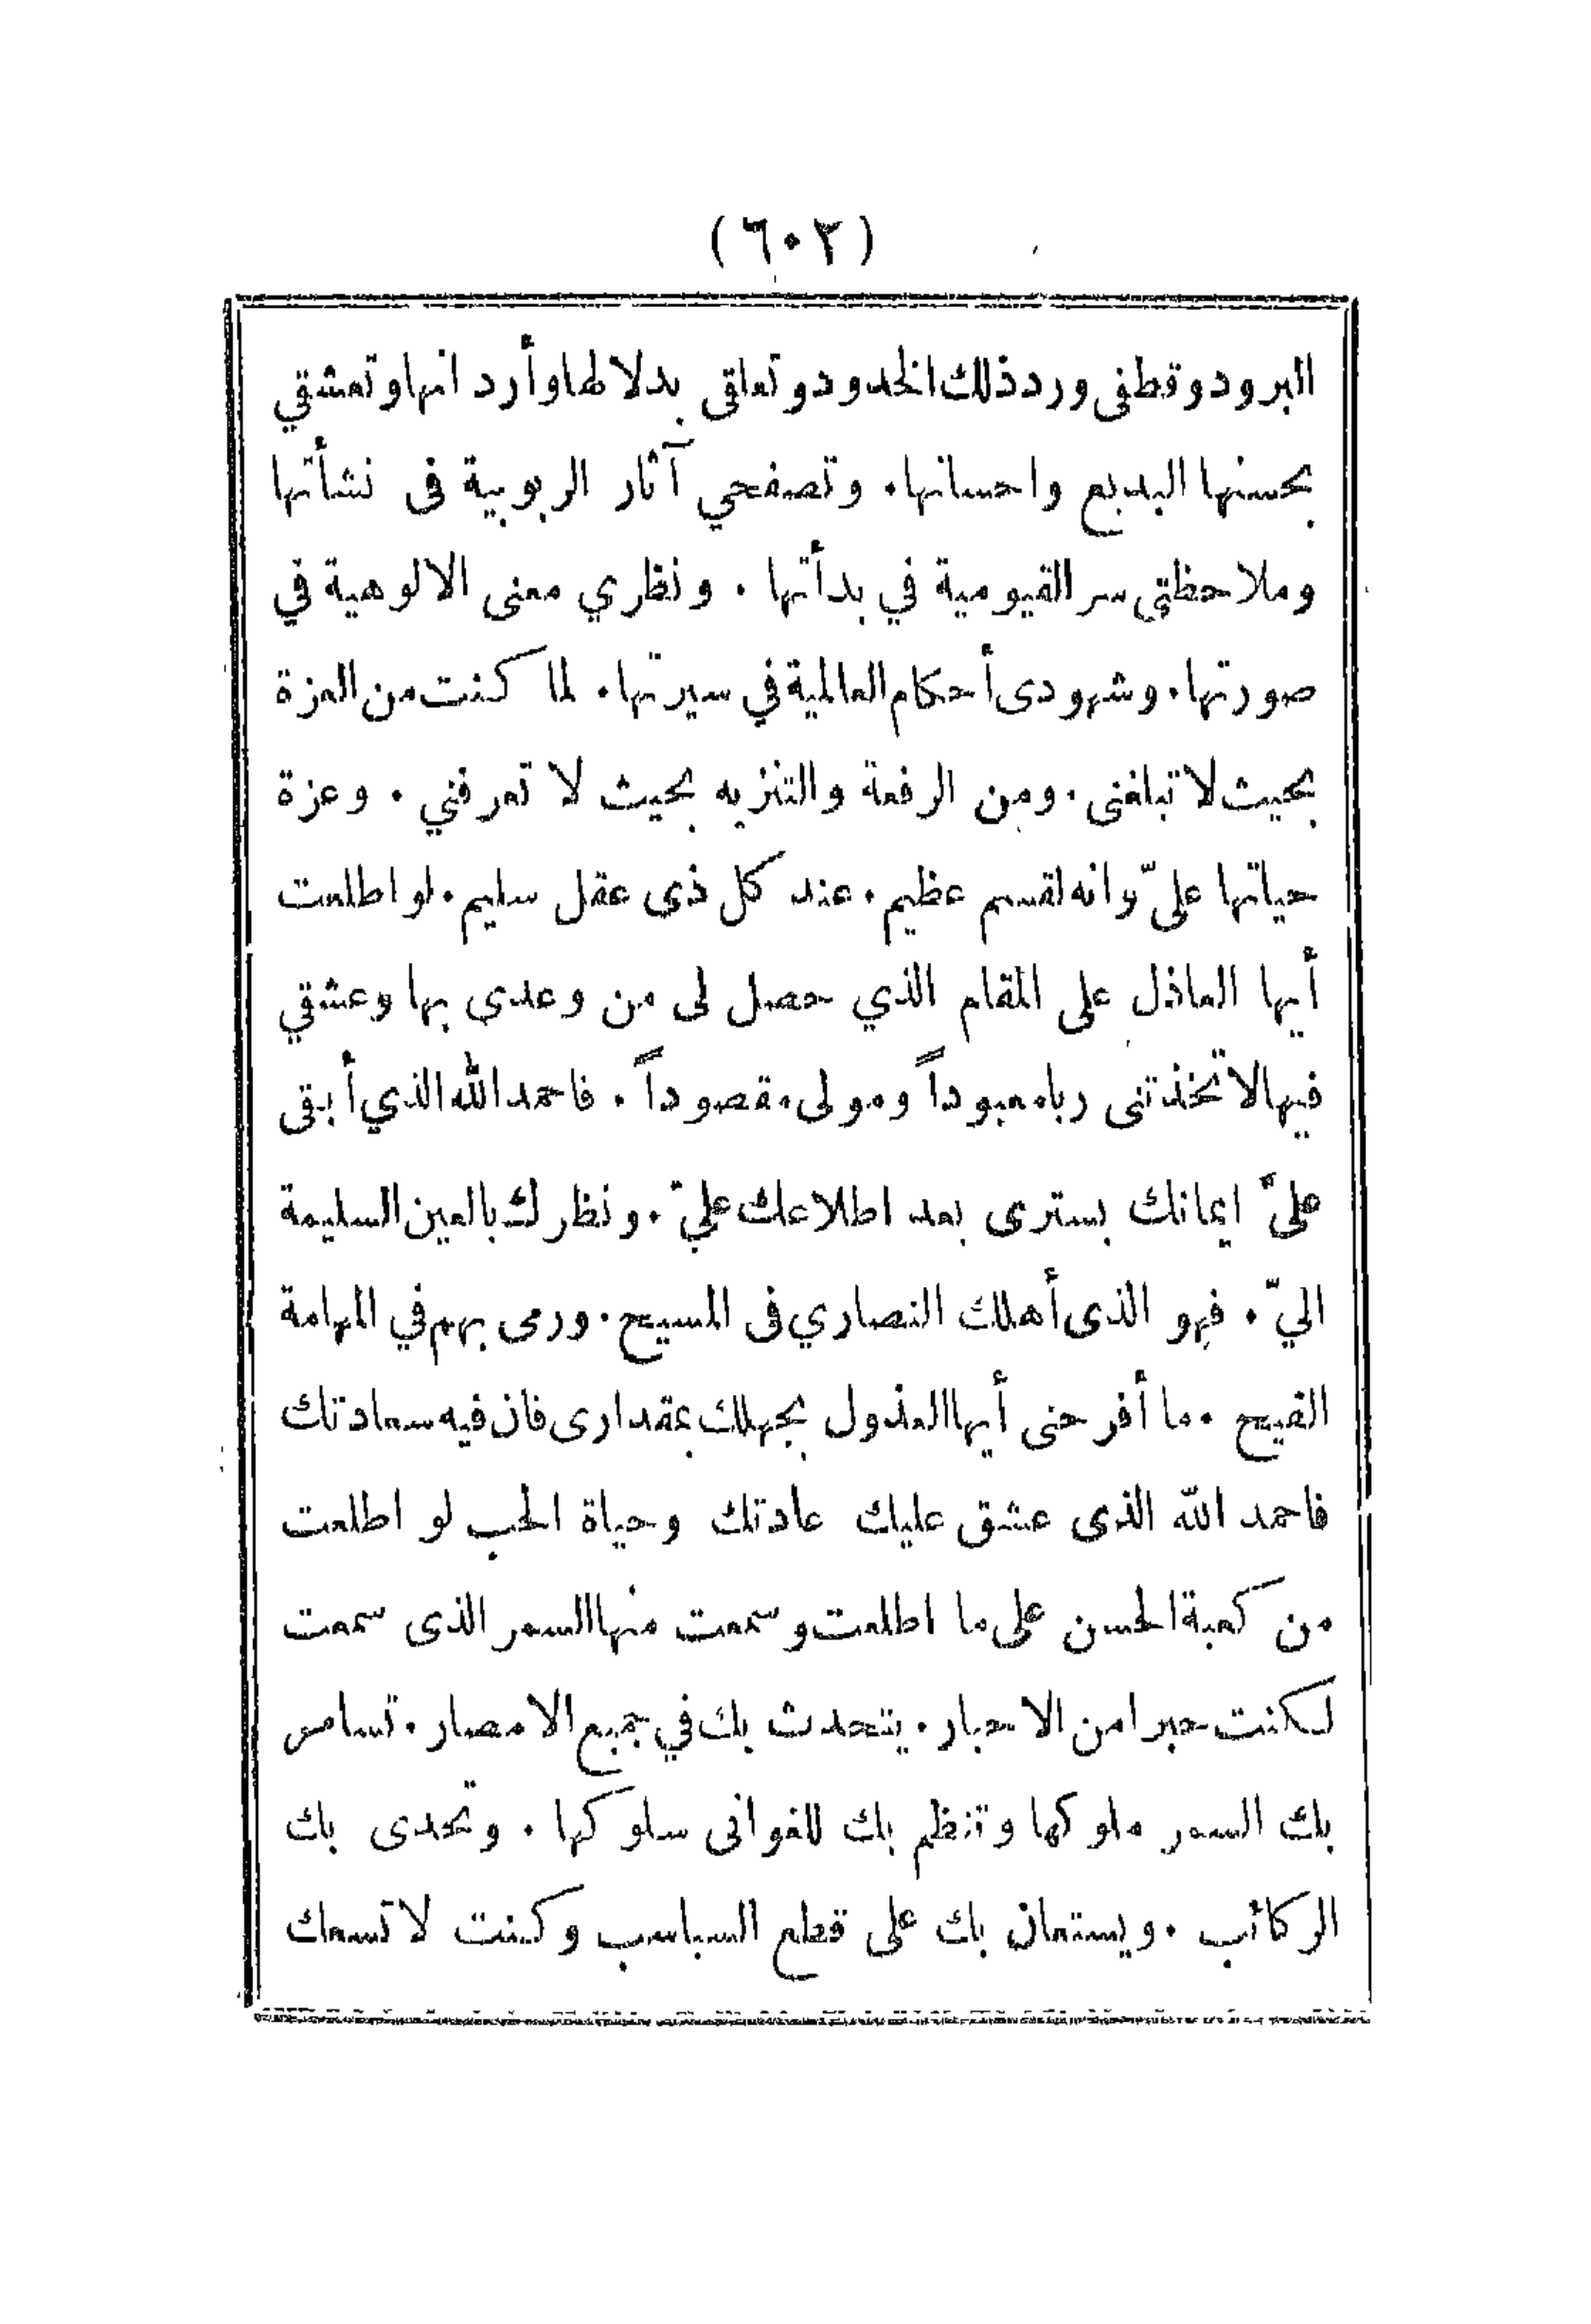 (٦٠٢)
البرود وقطفى ورد ذلك الخدود وتعلقى بدلالها وأردانها وتعشقي
بحسنها البديع واحسانها. وتصفحي آثار الربوبية فى نشأتها
وملاحظتى سر القيومية في بدأتها . ونظري معنى الالوهية في
صورتها. وشهودى أحكام العالمية في سيرتها. لما كنت من العزة
بحيث لا تبلغنى. ومن الرفعة والتنزيه بحيث لا تعرفني . وعزة
حياتها علىّ وانه لقسم عظيم. عند كل ذى عقل سليم. لو اطلعت
أيها العاذل على المقام الذي حصل لى من وعدى بها وعشقي
فيها لاتخذتنى ربا معبوداً ومولى مقصوداً . فاحمد الله الذي أبقى
علىّ ايمانك بسترى بعد اطلاعك عليّ. ونظرك بالعين السليمة
اليّ . فهو الذى أهلك النصاري فى المسيح. ورمى بهم في المهامة
الفيح . ما أفرحنى أيها العذول بجهلك بمقدارى فان فيه سعادتك
فاحمد الله الذى عشق عليك عادتك وحياة الحب لو اطلعت
من كعبة الحسن على ما اطلعت وسمعت منها السمر الذى سمعت
لكنت حبرا من الاحبار. يتحدث بك في جميع الامصار. تسامر
بك السمر ملوكها وتنظم بك للغوانى سلوكها . وتحدى بك
الركائب . ويستعان بك على قطع السباسب وكنت لا تسعك